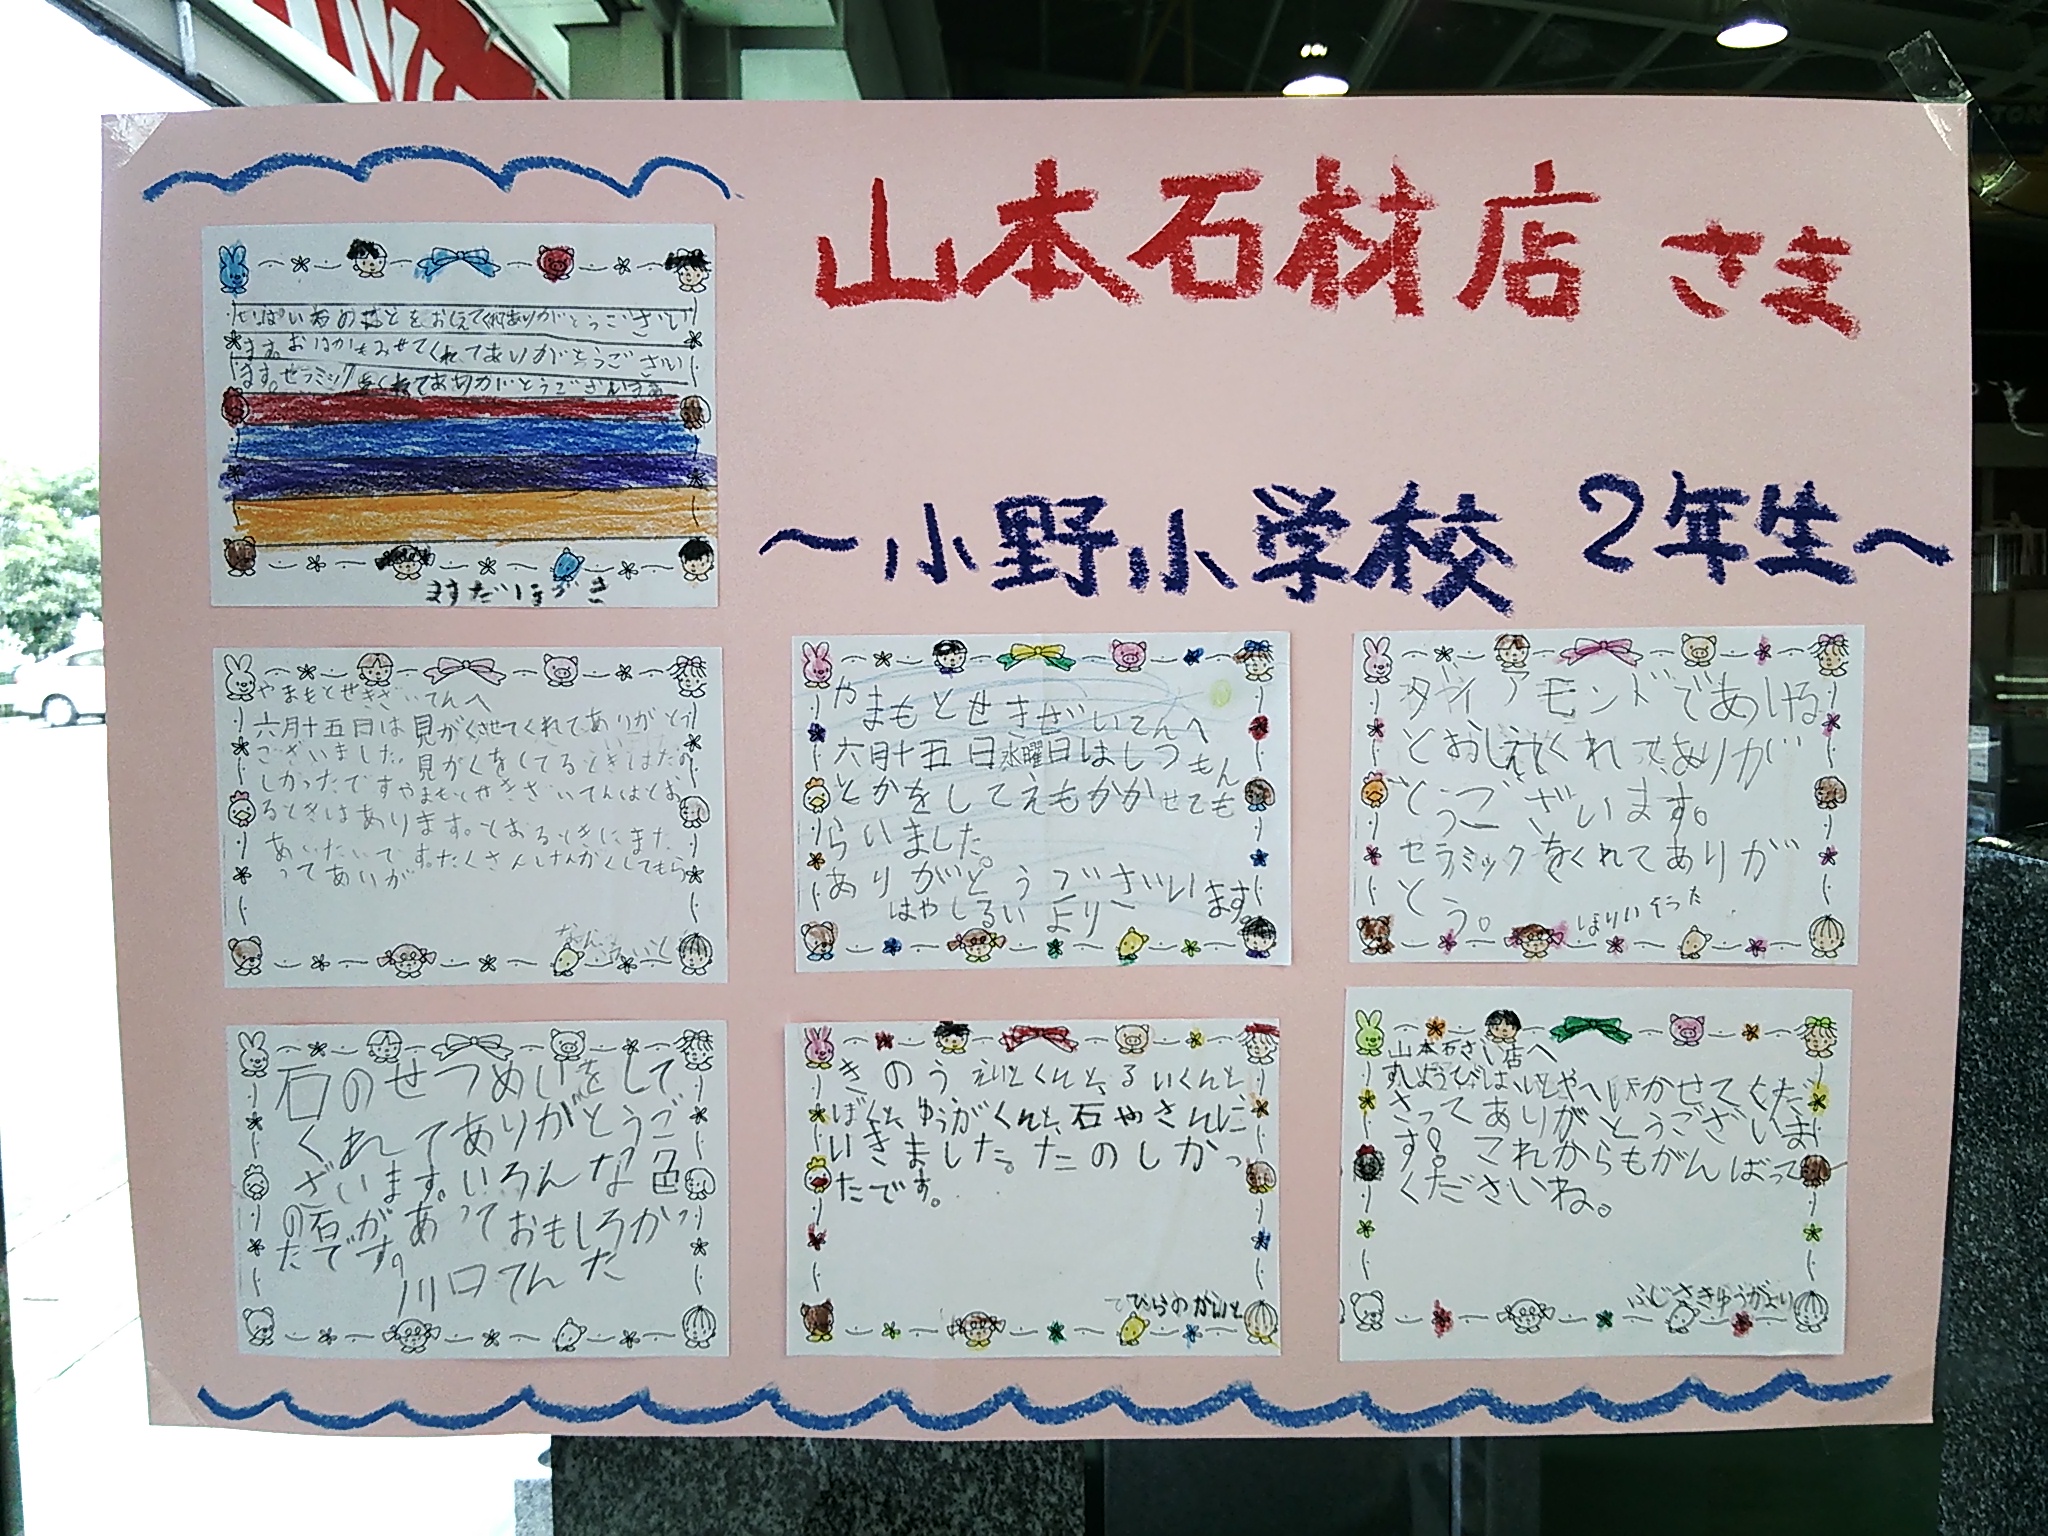 山本石材店 さま
～小野小学校 2年生～
いっぱい石のことをおしえてくれてありがとうござい
ます。おはかをみせてくれてありがとうござい
ます。セラミックをくれてありがとうございます
ますだいぶき
やまもとせきざいてんへ
六月十五日は見がくさせてくれてありがとう
ございました。見がくをしてるときはたの
しかったですやまもとせきざいてんはとお
るときはあります。とおるときにまた
あいたいです。たくさんけんがくしてもら
ってありが
やまもとせきざいてんへ
六月十五日水曜日はしつもん
とかをしてえもかかせても
らいました。
ありがとうございます。
はやしるいより
ダイアモンドであける
とおしえてくれて、ありが
とうございます。
セラミックをくれてありが
とう。
ほりいそうた
石のせつめいをして
くれてありがとうご
ざいます。いろんな色
の石があっておもしろかっ
たです。
川口てんた
きのうえいとくんと、るいくんと、
ぼくと、ゆうがくんと、石やさんに
いきました。たのしかっ
たです。
ひらのかいと
山本石ざい店へ
すいようびはいしやへいかせてくだ
さってありがとうございま
す！これからもがんばって
くださいね。
ふじさきゆうがより